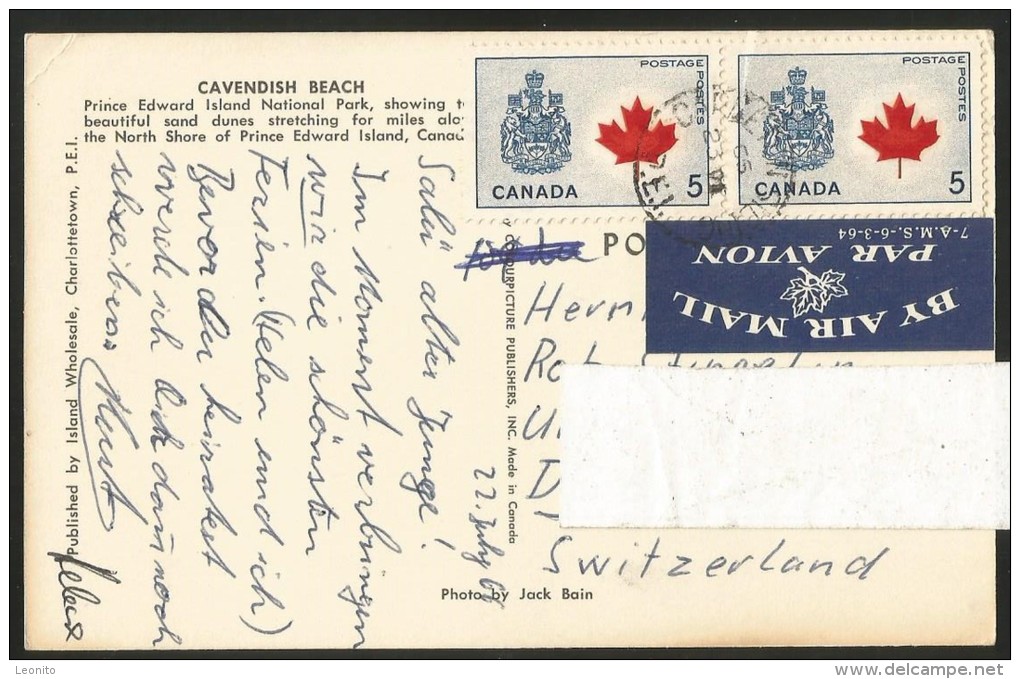 CAVENDISH BEACH
Prince Edward Island National Park, showing t
beautiful sand dunes stretching for miles alo
the North Shore of Prince Edward Island, Canad
POSTAGE
POSTES
CANADA 5
POSTAGE
POSTES
CANADA 5
PO
7-A.M.S.-6-3-64
PAR AVION
BY AIR MAIL
22. July 66
Salü alter Junge!
Im Moment verbringen
wir die schönsten
Ferien. (Helen und ich)
Bevor du heiratest
werde ich dich dann noch
schreiben.
Published by Island Wholesale, Charlottetown, P.E.I.
COLOURPICTURE PUBLISHERS, INC. Made in Canada
Herm
Switzerland
Photo by Jack Bain
Leonito